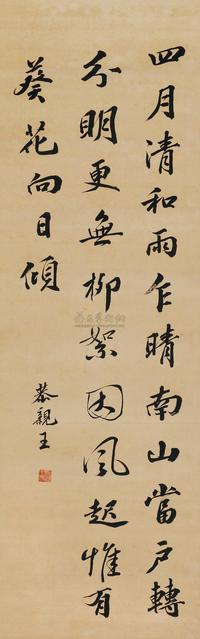 四月清和雨乍晴南山當戶轉
分明更無柳絮因風起惟有
葵花向日傾
恭親王